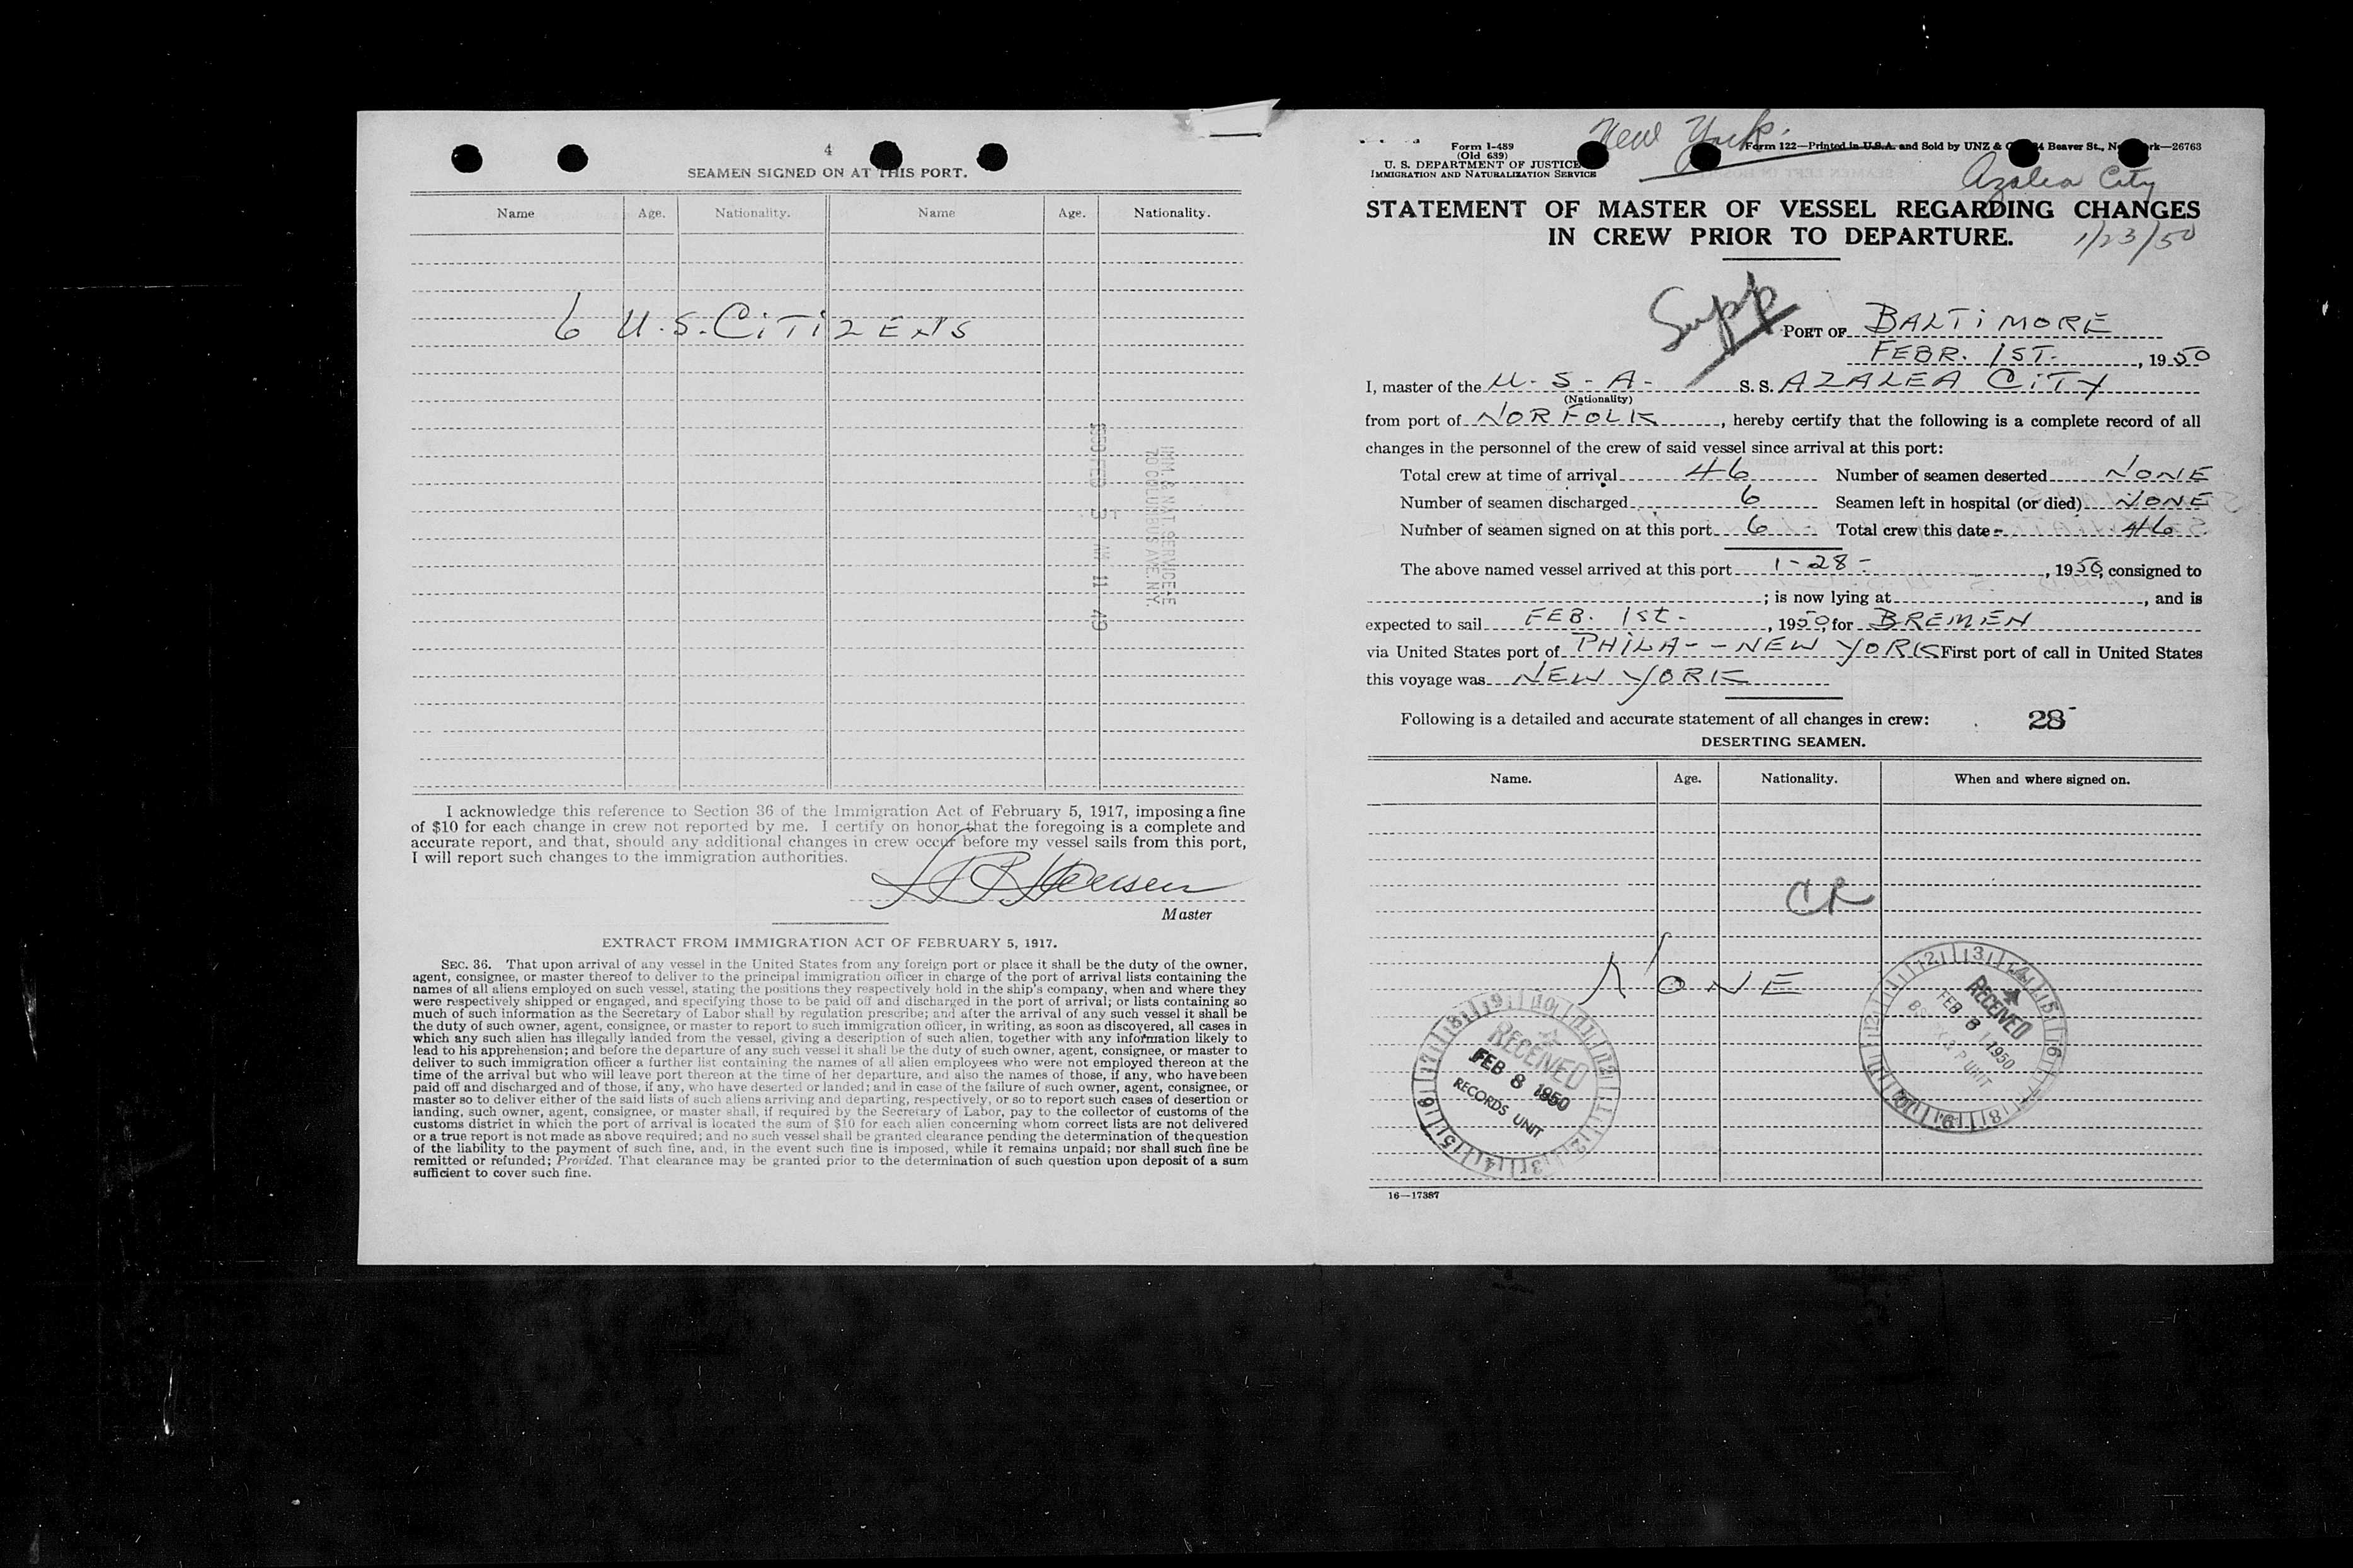 4
SEAMEN SIGNED ON AT THIS PORT.
Name Age. Nationality. Name Age. Nationality.
6 U.S. CiTiZENS
IMM. & NAT. SERVICE
70 COLUMBUS AVE. N.Y.
1950 FEB 3 AM 11 49
I acknowledge this reference to Section 36 of the Immigration Act of February 5, 1917, imposing a fine
of $10 for each change in crew not reported by me. I certify on honor that the foregoing is a complete and
accurate report, and that, should any additional changes in crew occur before my vessel sails from this port,
I will report such changes to the immigration authorities.
Master
EXTRACT FROM IMMIGRATION ACT OF FEBRUARY 5, 1917.
SEC. 36. That upon arrival of any vessel in the United States from any foreign port or place it shall be the duty of the owner,
agent, consignee, or master thereof to deliver to the principal immigration officer in charge of the port of arrival lists containing the
names of all aliens employed on such vessel, stating the positions they respectively hold in the ship's company, when and where they
were respectively shipped or engaged, and specifying those to be paid off and discharged in the port of arrival; or lists containing so
much of such information as the Secretary of Labor shall by regulation prescribe; and after the arrival of any such vessel it shall be
the duty of such owner, agent, consignee, or master to report to such immigration officer, in writing, as soon as discovered, all cases in
which any such alien has illegally landed from the vessel, giving a description of such alien, together with any information likely to
lead to his apprehension; and before the departure of any such vessel it shall be the duty of such owner, agent, consignee, or master to
deliver to such immigration officer a further list containing the names of all alien employees who were not employed thereon at the
time of the arrival but who will leave port thereon at the time of her departure, and also the names of those, if any, who have been
paid off and discharged and of those, if any, who have deserted or landed; and in case of the failure of such owner, agent, consignee, or
master so to deliver either of the said lists of such aliens arriving and departing, respectively, or so to report such cases of desertion or
landing, such owner, agent, consignee, or master shall, if required by the Secretary of Labor, pay to the collector of customs of the
customs district in which the port of arrival is located the sum of $10 for each alien concerning whom correct lists are not delivered
or a true report is not made as above required; and no such vessel shall be granted clearance pending the determination of the question
of the liability to the payment of such fine, and, in the event such fine is imposed, while it remains unpaid; nor shall such fine be
remitted or refunded; Provided, That clearance may be granted prior to the determination of such question upon deposit of a sum
sufficient to cover such fine.
New York.
Form I-489
(Old 689)
U. S. DEPARTMENT OF JUSTICE
IMMIGRATION AND NATURALIZATION SERVICE
Form 122—Printed in U.S.A. and Sold by UNZ & Beaver St., —26763
Azalea City
STATEMENT OF MASTER OF VESSEL REGARDING CHANGES
IN CREW PRIOR TO DEPARTURE.
1/23/50
Supp
PORT OF BALTiMORE
FEBR. 1ST. , 1950
I, master of the U. S. A. S. S. AZALEA CiTY
(Nationality)
from port of NORFOLK , hereby certify that the following is a complete record of all
changes in the personnel of the crew of said vessel since arrival at this port:
Total crew at time of arrival 46 Number of seamen deserted NONE
Number of seamen discharged 6 Seamen left in hospital (or died) NONE
Number of seamen signed on at this port 6 Total crew this date 46
The above named vessel arrived at this port 1-28- , 1950, consigned to
; is now lying at , and is
expected to sail FEB. 1st. , 1950, for BREMEN
via United States port of PHiLA--NEW YORK First port of call in United States
this voyage was NEW YORK
Following is a detailed and accurate statement of all changes in crew: 28
DESERTING SEAMEN.
Name. Age. Nationality. When and where signed on.
CR
NONE
RECEIVED
FEB 8 1950
RECORDS UNIT
RECEIVED
FEB 8 1950
P UNIT
16—17387